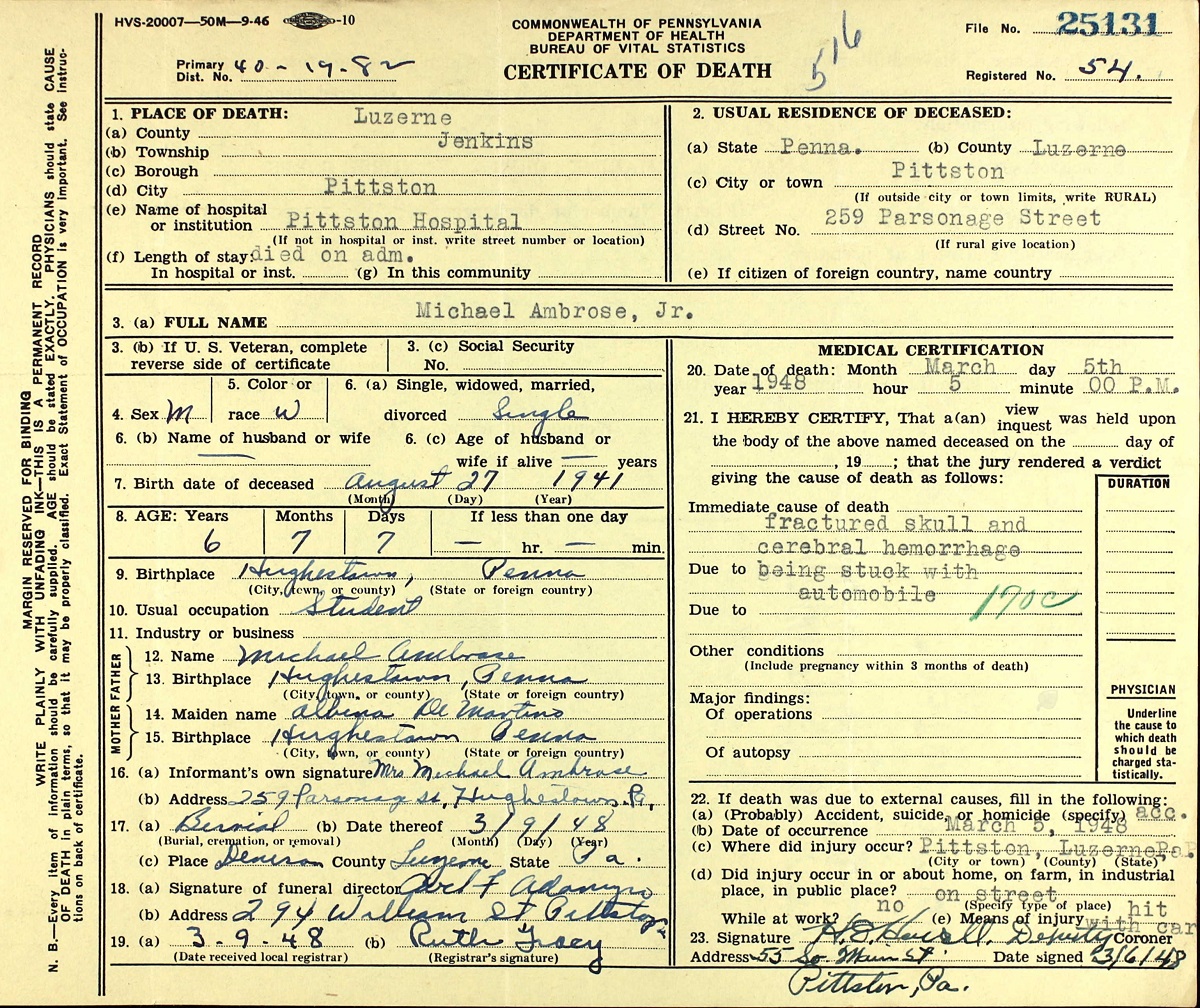 HVS-20007—50M—9-46 -10
COMMONWEALTH OF PENNSYLVANIA
DEPARTMENT OF HEALTH
BUREAU OF VITAL STATISTICS
CERTIFICATE OF DEATH
516
File No. 25131
Primary Dist. No. 40-19-82
Registered No. 54.
MARGIN RESERVED FOR BINDING
WRITE PLAINLY WITH UNFADING INK—THIS IS A PERMANENT RECORD
N. B.—Every item of information should be carefully supplied. AGE should be stated EXACTLY. PHYSICIANS should state CAUSE
OF DEATH in plain terms, so that it may be properly classified. Exact Statement of OCCUPATION is very important. See instruc-
tions on back of certificate.
1. PLACE OF DEATH:
(a) County Luzerne
(b) Township Jenkins
(c) Borough
(d) City Pittston
(e) Name of hospital
or institution Pittston Hospital
(If not in hospital or inst. write street number or location)
(f) Length of stay: died on adm.
In hospital or inst. (g) In this community
2. USUAL RESIDENCE OF DECEASED:
(a) State Penna. (b) County Luzerne
(c) City or town Pittston
(If outside city or town limits, write RURAL)
(d) Street No. 259 Parsonage Street
(If rural give location)
(e) If citizen of foreign country, name country
3. (a) FULL NAME Michael Ambrose, Jr.
3. (b) If U. S. Veteran, complete
reverse side of certificate
3. (c) Social Security
No.
4. Sex M
5. Color or
race W
6. (a) Single, widowed, married,
divorced Single
6. (b) Name of husband or wife —
6. (c) Age of husband or
wife if alive — years
7. Birth date of deceased August 27 1941
(Month) (Day) (Year)
8. AGE: Years Months Days If less than one day
6 7 7 — hr. — min.
9. Birthplace Hughestown, Penna
(City, town, or county) (State or foreign country)
10. Usual occupation Student
11. Industry or business
FATHER
12. Name Michael Ambrose
13. Birthplace Hughestown, Penna
(City, town, or county) (State or foreign country)
MOTHER
14. Maiden name Albina De Martino
15. Birthplace Hughestown Penna
(City, town, or county) (State or foreign country)
16. (a) Informant's own signature Mrs Michael Ambrose
(b) Address 259 Parsonag St, Hughestown Pa,
17. (a) Bureial (b) Date thereof 3/9/48
(Burial, cremation, or removal) (Month) (Day) (Year)
(c) Place Denison County Luzerne State Pa.
18. (a) Signature of funeral director
(b) Address 294 William St Pittston Pa
19. (a) 3-9-48 (b) Ruth
(Date received local registrar) (Registrar's signature)
MEDICAL CERTIFICATION
20. Date of death: Month March day 5th
year 1948 hour 5 minute 00 P.M.
21. I HEREBY CERTIFY, That a(an) view inquest was held upon
the body of the above named deceased on the day of
, 19 ; that the jury rendered a verdict
giving the cause of death as follows:
DURATION
Immediate cause of death
fractured skull and
cerebral hemorrhage
Due to being stuck with
automobile 170c
Due to
Other conditions
(Include pregnancy within 3 months of death)
Major findings:
Of operations
Of autopsy
PHYSICIAN
Underline
the cause to
which death
should be
charged sta-
tistically.
22. If death was due to external causes, fill in the following:
(a) (Probably) Accident, suicide, or homicide (specify) acc.
(b) Date of occurrence March 5, 1948
(c) Where did injury occur? Pittston, Luzerne Pa.
(City or town) (County) (State)
(d) Did injury occur in or about home, on farm, in industrial
place, in public place? on street
(Specify type of place)
While at work? no (e) Means of injury hit with car
23. Signature Deputy Coroner
Address 55 So. Main St. Date signed 3/6/48
Pittston, Pa.